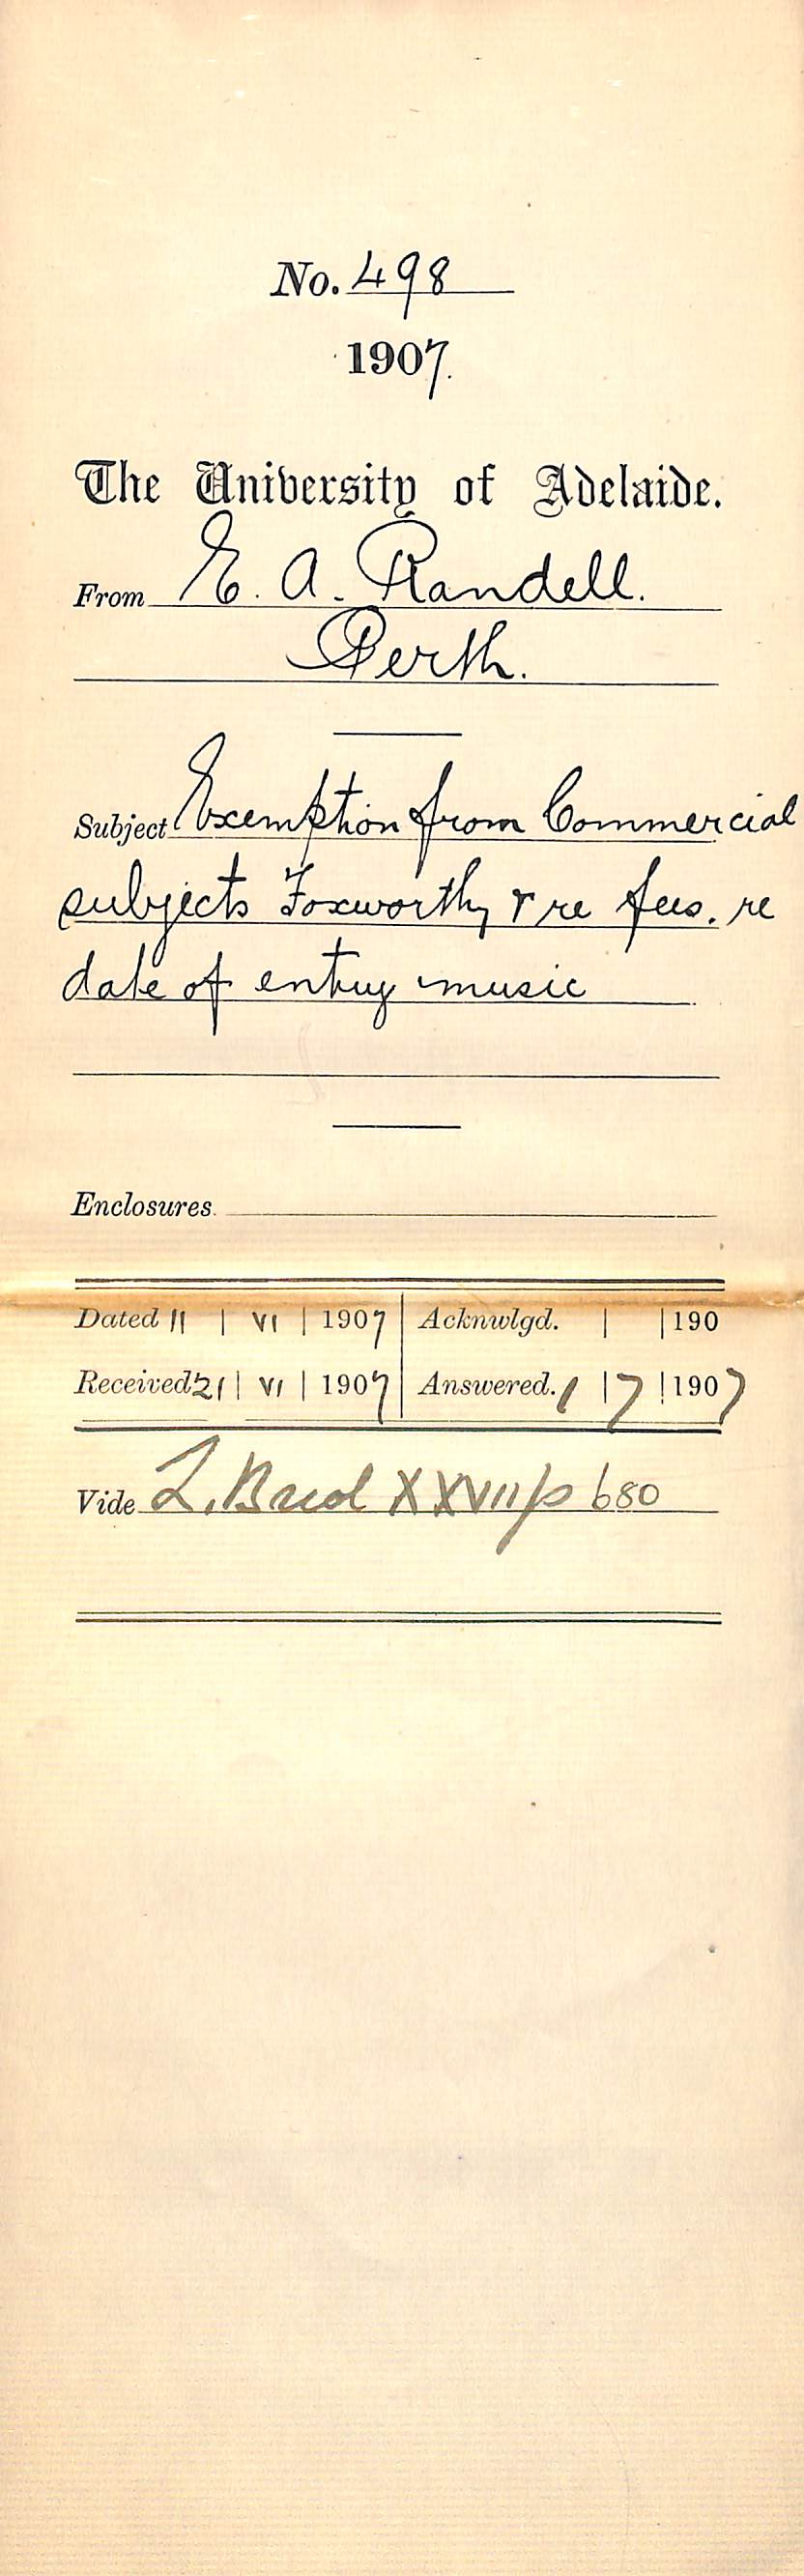 No. 498
1907.
The University of Adelaide.
From E. A. Randell.
Perth.
Subject Exemption from Commercial
subjects Foxworthy & re fees. re
date of entry music
Enclosures.
Dated 11 | VI | 1907 | Acknwlgd. | | 190
Received 21 | VI | 1907 | Answered. 1 | 7 | 1907
Vide L. XXVII p 680